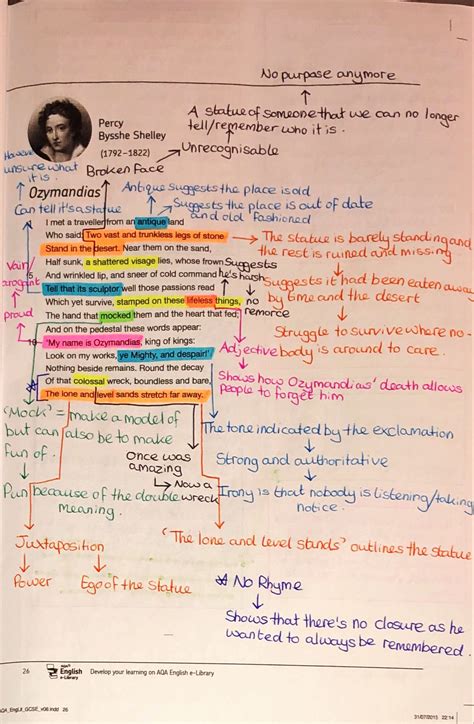 No purpose anymore
A statue of someone that we can no longer
tell/remember who it is.
Percy
Bysshe Shelley
(1792–1822)
Unrecognisable
However
unsure what
it is.
Broken Face
Ozymandias
Antique suggests the place is old
Can tell it's a statue
Suggests the place is out of date
and old fashioned
I met a traveller from an antique land
Who said: Two vast and trunkless legs of stone
Stand in the desert. Near them on the sand,
Half sunk, a shattered visage lies, whose frown
5
And wrinkled lip, and sneer of cold command
Tell that its sculptor well those passions read
Which yet survive, stamped on these lifeless things,
The hand that mocked them and the heart that fed;
And on the pedestal these words appear:
10
'My name is Ozymandias, king of kings:
Look on my works, ye Mighty, and despair!'
Nothing beside remains. Round the decay
Of that colossal wreck, boundless and bare,
The lone and level sands stretch far away.
The statue is barely standing and
the rest is ruined and missing
Suggests
he's harsh
no
remorce
Suggests it had been eaten away
by time and the desert
Struggle to survive where no-
body is around to care.
Vain/
arrogant
proud
Adjective
Shows how Ozymandias' death allows
people to forget him
'Mock' = make a model of
but can also be to make
fun of.
Pun because of the double
meaning.
Once was
amazing
Now a
wreck
The tone indicated by the exclamation
Strong and authoritative
Irony is that nobody is listening/taking
notice.
Juxtaposition
Power
Ego of the statue
'The lone and level stands' outlines the statue
* No Rhyme
Shows that there's no closure as he
wanted to always be remembered.
26
AQA
English
e-Library
Develop your learning on AQA English e-Library
31/07/2013 22:14